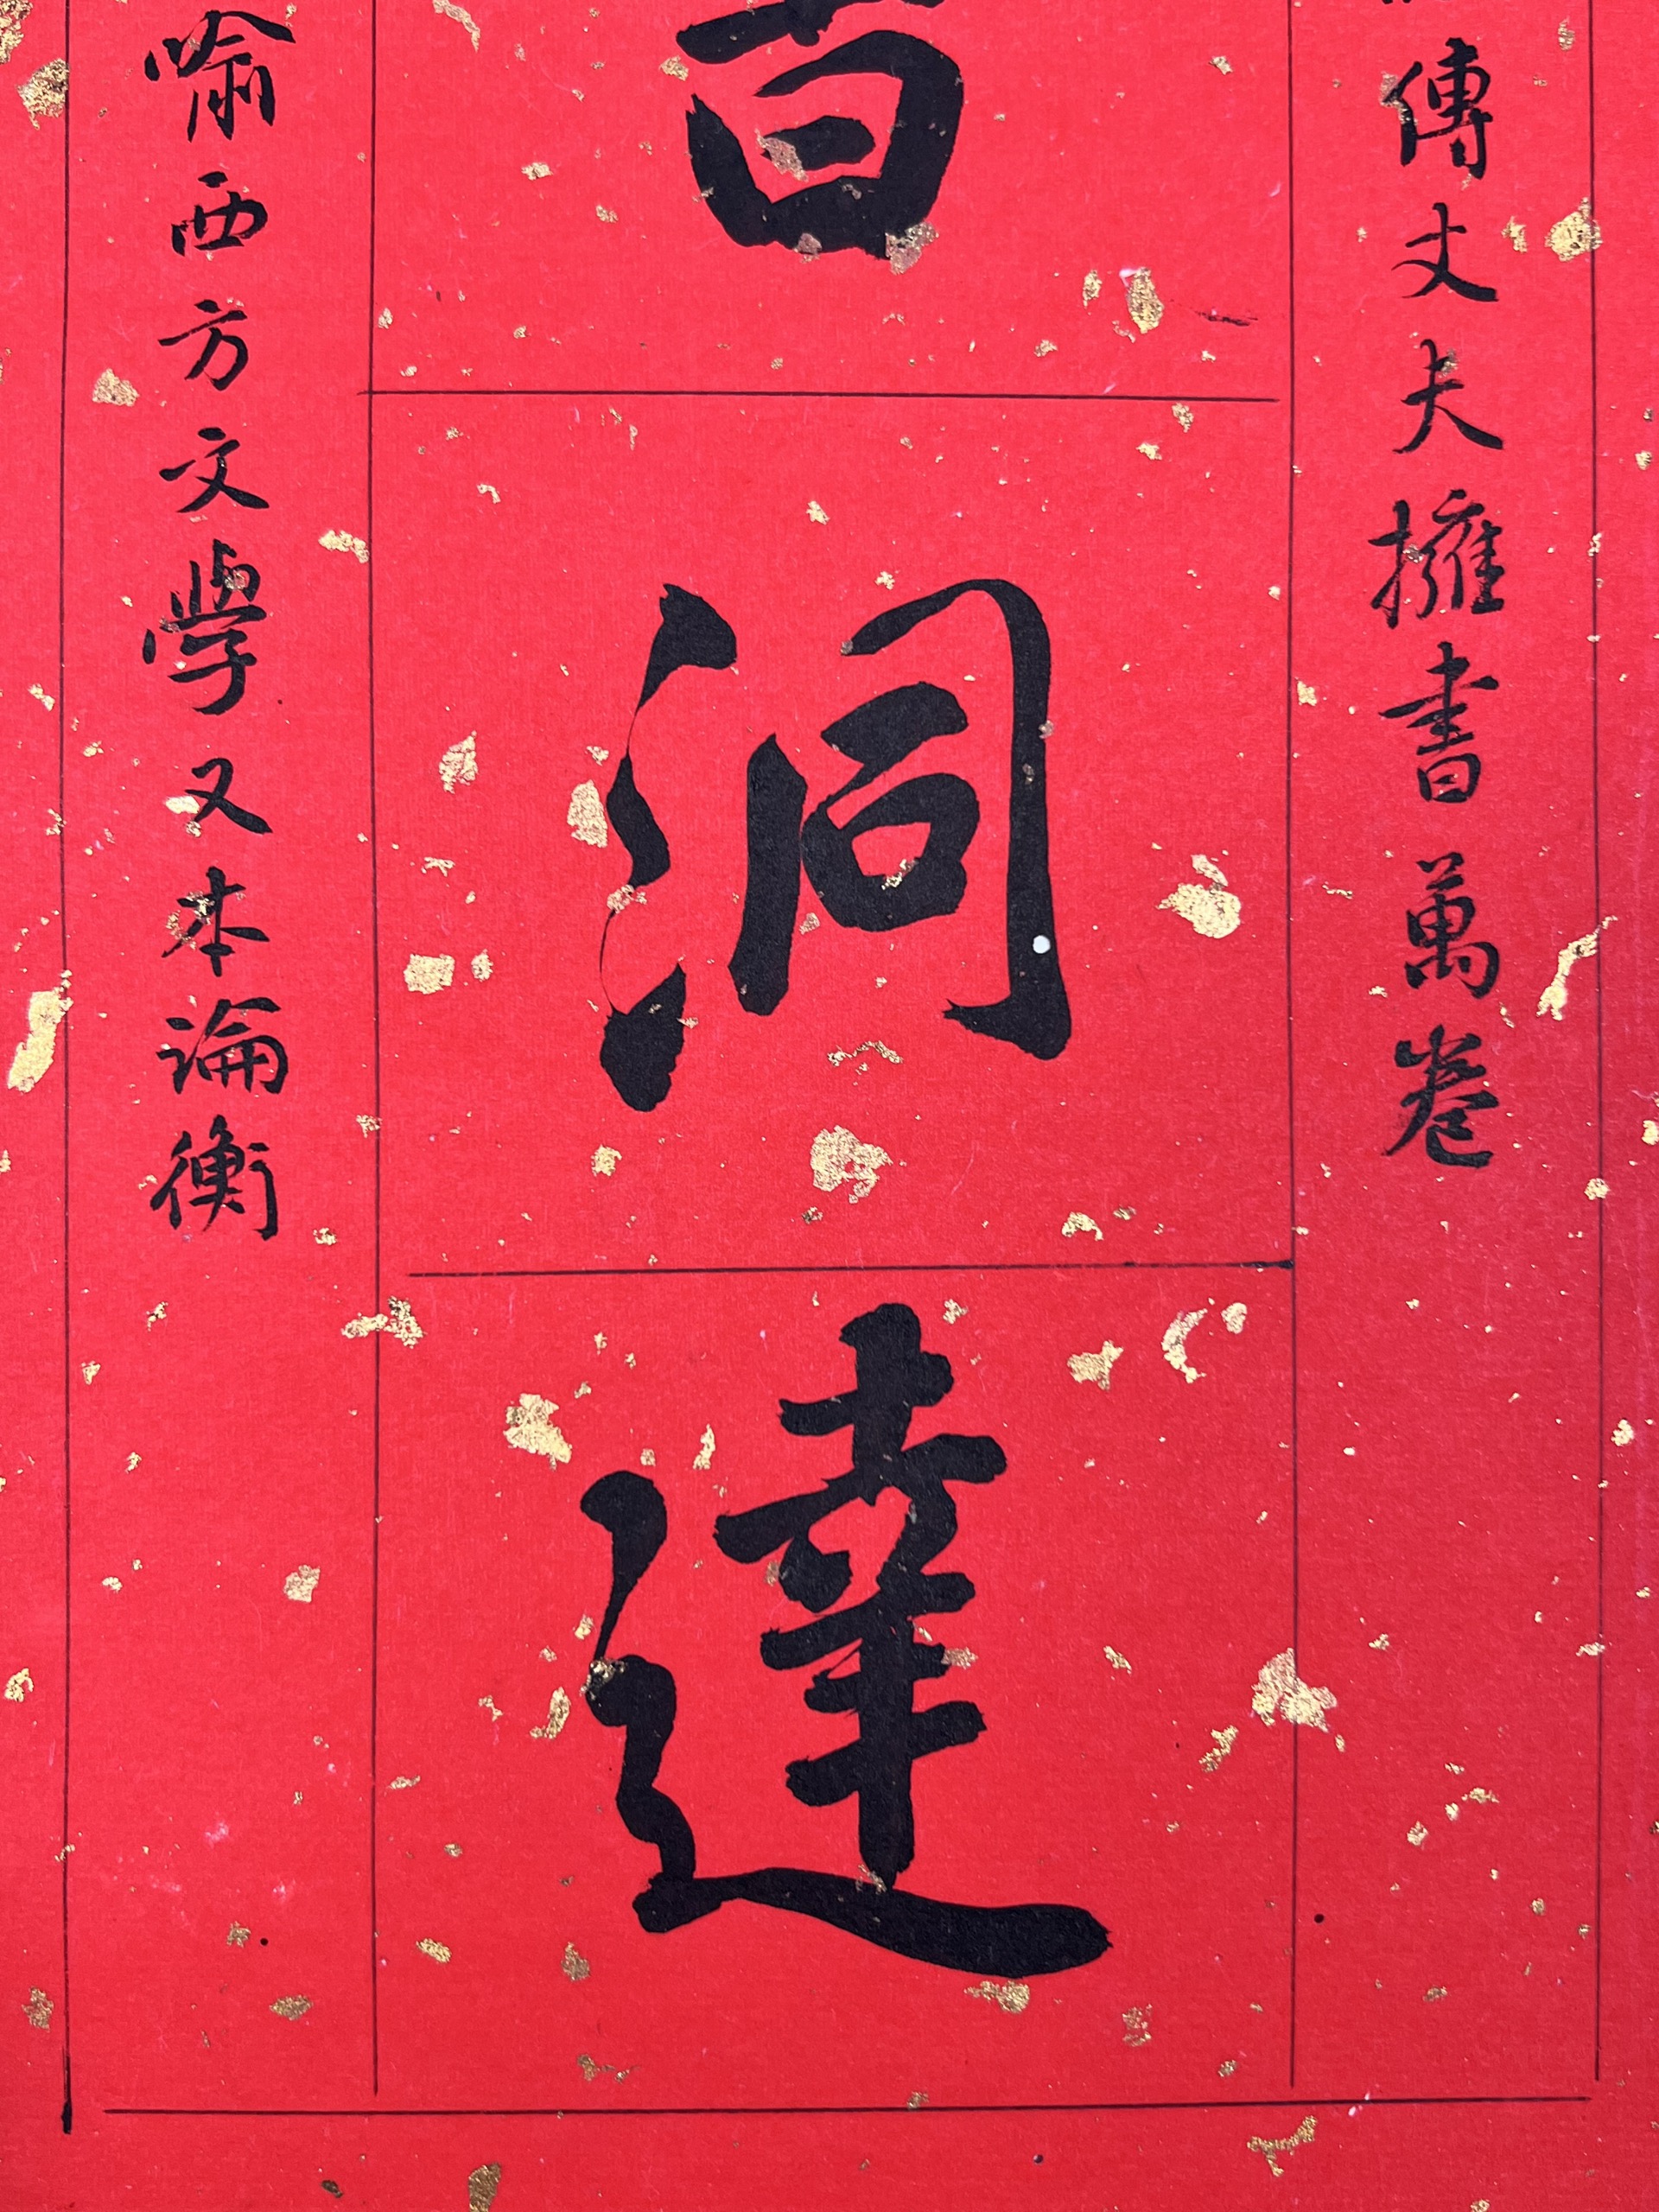 傳丈夫擁書萬卷
洞達
喻西方文學又本論衡